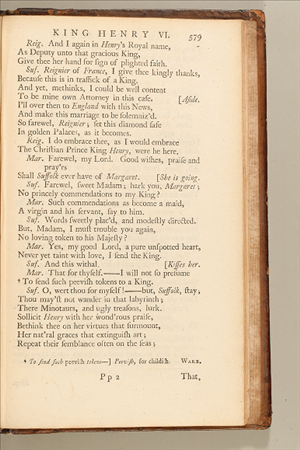 KING HENRY VI. 579
Reig. And I again in Henry's Royal name,
As Deputy unto that gracious King,
Give thee her hand for sign of plighted faith.
Suf. Reignier of France, I give thee kingly thanks,
Because this is in traffick of a King,
And yet, methinks, I could be well content
To be mine own Attorney in this case. [Aside.
I'll over then to England with this News,
And make this marriage to be solemniz'd.
So farewel, Reignier; set this diamond safe
In golden Palaces, as it becomes.
Reig. I do embrace thee, as I would embrace
The Christian Prince King Henry, were he here.
Mar. Farewel, my Lord. Good wishes, praise and
pray'rs
Shall Suffolk ever have of Margaret. [She is going.
Suf. Farewel, sweet Madam; hark you, Margaret;
No princely commendations to my King?
Mar. Such commendations as become a maid,
A virgin and his servant, say to him.
Suf. Words sweetly plac'd, and modestly directed.
But, Madam, I must trouble you again,
No loving token to his Majesty?
Mar. Yes, my good Lord, a pure unspotted heart,
Never yet taint with love, I send the King.
Suf. And this withal. [Kisses her.
Mar. That for thyself.——I will not so presume
To send such peevish tokens to a King.
Suf. O, wert thou for myself!——but, Suffolk, stay;
Thou may'st not wander in that labyrinth;
There Minotaurs, and ugly treasons, lurk.
Sollicit Henry with her wond'rous praise,
Bethink thee on her virtues that surmount,
Her nat'ral graces that extinguish art;
Repeat their semblance often on the seas;
To send such peevish tokens—] Peevish, for childish. WARB.
Pp 2 That,